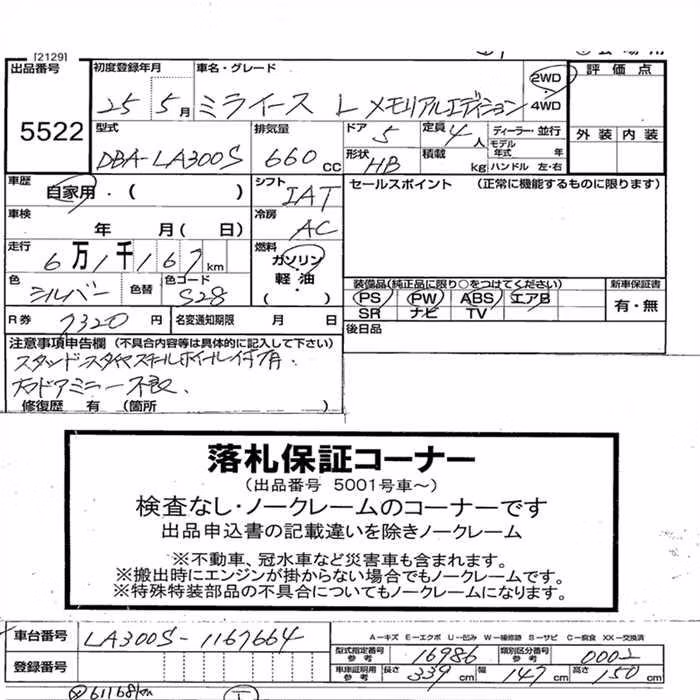 [2129]
出品番号 初度登録年月 車名・グレード 2WD 4WD 評価点
5522 25 5月 ミライース L メモリアルエディション
型式 排気量 ドア 5 定員 4人 ディーラー・並行 外装 内装
DBA-LA300S 660cc モデル年式 年
形状 HB 積載 kg ハンドル 左・右
車歴 自家用・( ) シフト IAT セールスポイント (正常に機能するものに限ります)
車検 年 月( 日) 冷房 AC
走行 6万1千167km 燃料 ガソリン 軽・油 ( )
色 シルバー 色替 色コード S28
装備品(純正品に限り○をつけてください) 新車保証書
PS PW ABS エアB 有・無
SR ナビ TV
R券 7320円 名変通知期限 月 日 後日品
注意事項申告欄 (不具合内容等は具体的に記入して下さい)
スタッドレスタイヤスチールホイール付有.
右ドアミラー不良.
修復歴 有 (箇所 )
落札保証コーナー
(出品番号 5001号車～)
検査なし・ノークレームのコーナーです
出品申込書の記載違いを除きノークレーム
※不動車、冠水車など災害車も含まれます。
※搬出時にエンジンが掛からない場合でもノークレームです。
※特殊特装部品の不具合についてもノークレームになります。
車台番号 LA300S-1167664 A-キズ E-エクボ U-凹み W-補修跡 S-サビ C-腐食 XX-交換済
型式指定番号参考 16986 類別区分番号参考 0002
登録番号 車庫証明用参考 長さ 339cm 幅 147cm 高さ 150cm
61168km